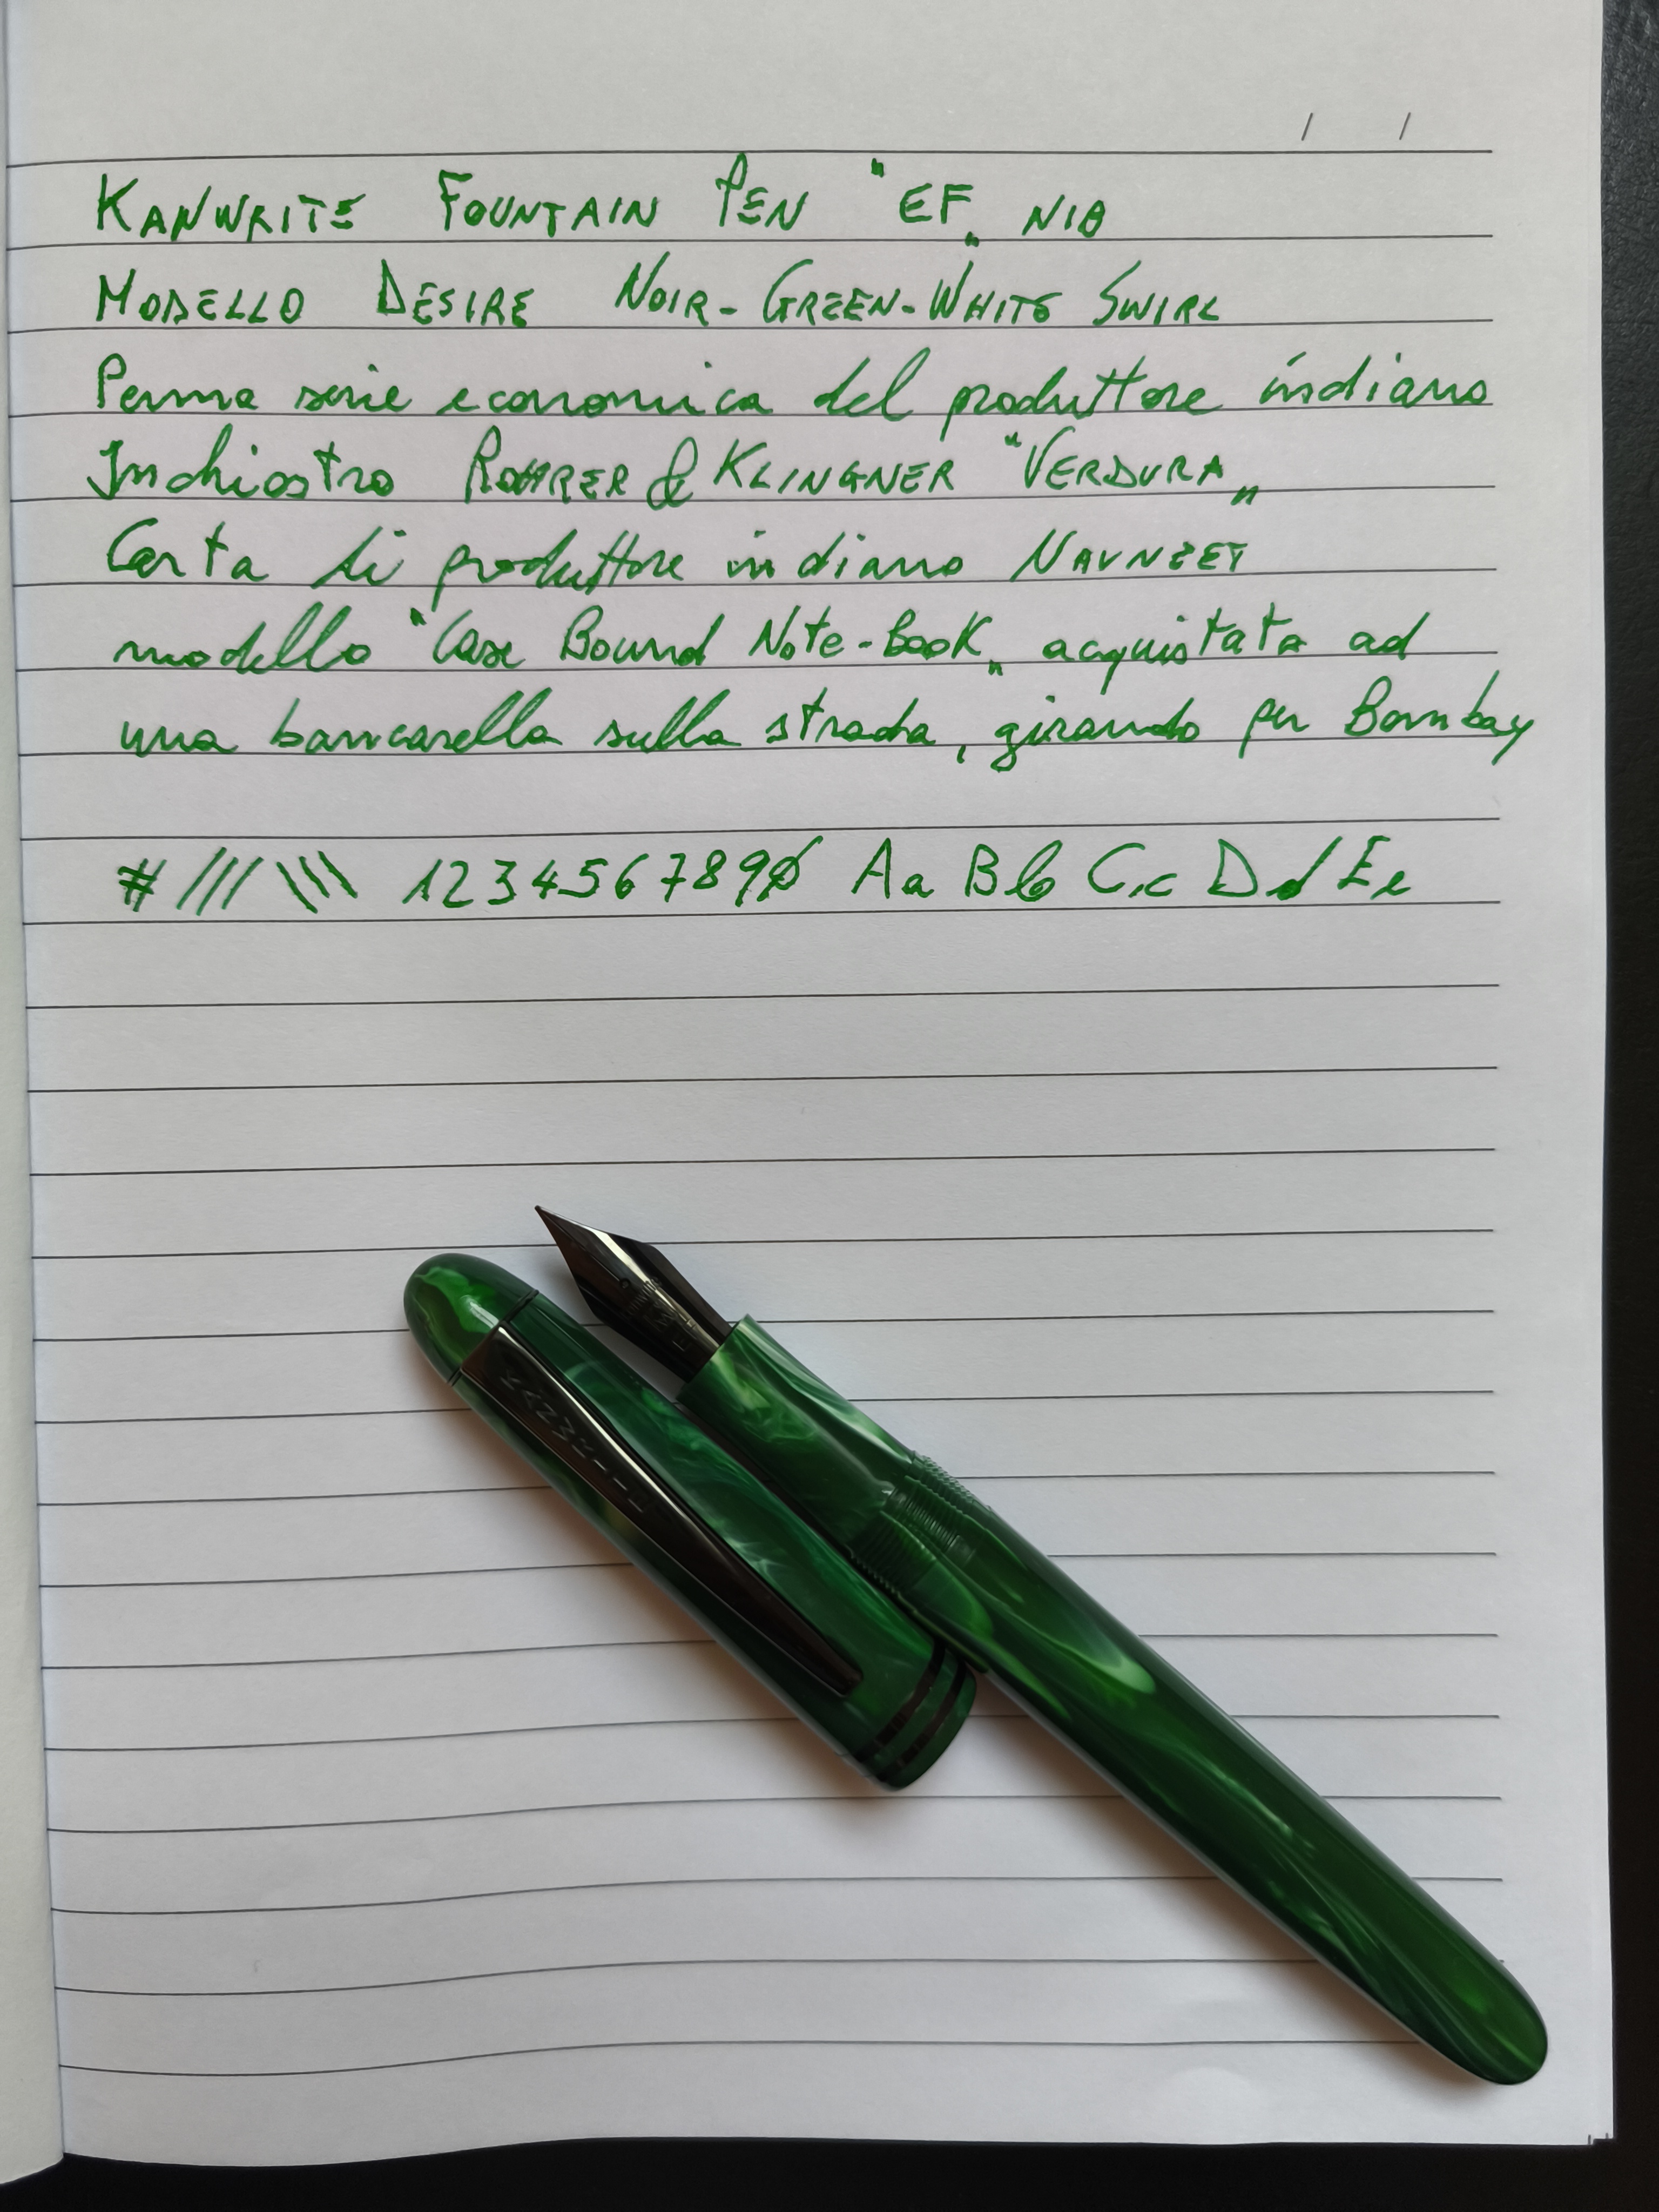 / /
KANWRITE FOUNTAIN PEN "EF" NIB
MODELLO DESIRE NOIR-GREEN-WHITE SWIRL
Penna serie economica del produttore indiano
Inchiostro ROHRER & KLINGNER "VERDURA"
Carta di produttore indiano NAVNEET
modello "Case Bound Note-Book" acquistata ad
una bancarella sulla strada, girando per Bombay
# /// \\\ 1234567890 Aa Bb Cc Dd Ee
KANWRITE